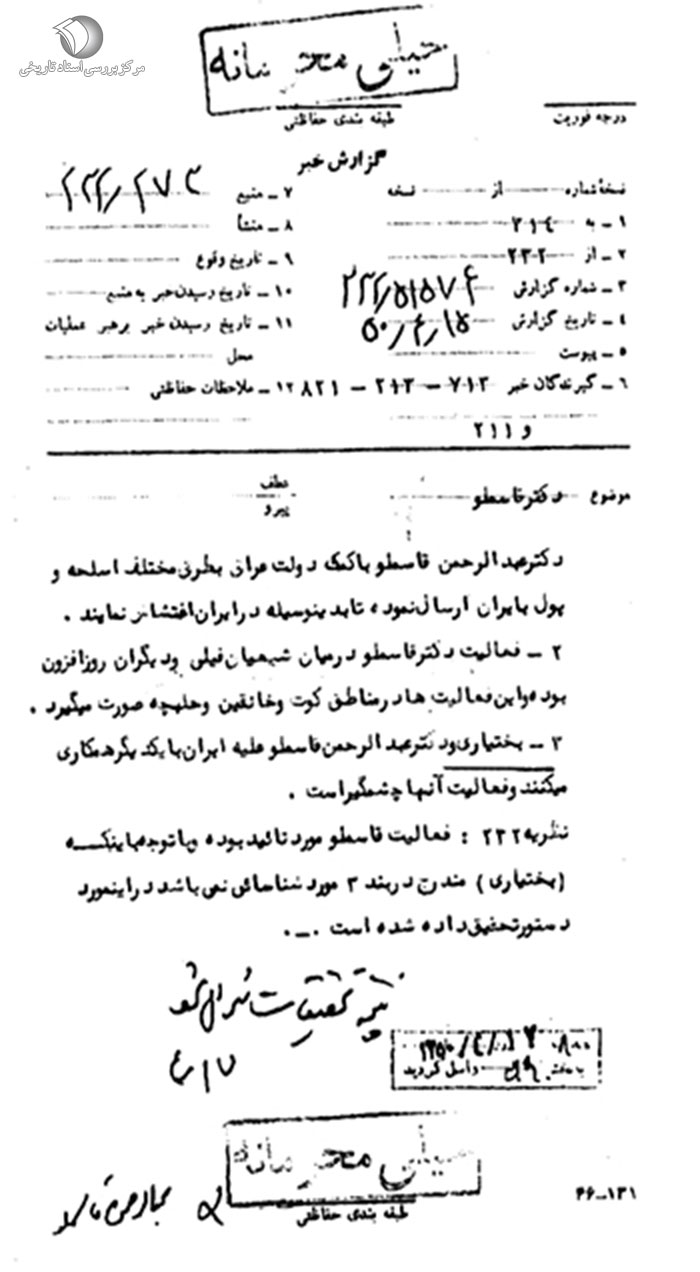 مرکز بررسی اسناد تاریخی
خیلی محرمانه
طبقه بندی حفاظتی
درجه فوریت
گزارش خبر
نسخهٔ شماره از نسخه
۱ ـ به ۳۱٤
۲ ـ از ۲۳۲
۳ ـ شماره گزارش
۴ ـ تاریخ گزارش ۵۰/۴/۱۵
۵ ـ پیوست
۶ ـ گیرندگان خبر ۷۱۳ – ۲۱۳ – ۸۲۱
و ۲۱۱
۷ ـ منبع
۸ ـ منشأ
۹ ـ تاریخ وقوع
۱۰ ـ تاریخ رسیدن خبر به منبع
۱۱ ـ تاریخ رسیدن خبر برهبر عملیات
محل
۱۲ ـ ملاحظات حفاظتی
موضوع دکتر قاسطو
عطف
پیرو
دکتر عبدالرحمن قاسطو باکمک دولت عراق بطرق مختلف اسلحه و
پول بایران ارسال نموده تا بدینوسیله در ایران اغتشاش نمایند .
۲ ـ فعالیت دکتر قاسطو در میان شیعیان فیلی و دیگران روز افزون
بوده و این فعالیت ها در مناطق کوت و خانقین و حلبچه صورت میگیرد .
۳ ـ بختیاری و دکتر عبدالرحمن قاسطو علیه ایران با یکدیگر همکاری
میکنند و فعالیت آنها چشمگیر است .
نظریه ۲۳۲ : فعالیت قاسطو مورد تائید بوده و با توجه باینکـــه
(بختیاری) مندرج در بند ۳ مورد شناسائی نمی باشد در اینمورد
دستور تحقیق داده شده است .ـ.
نتیجه تحقیقات
۴/۱۷
واصل گردید
خیلی محرمانه
طبقه بندی حفاظتی
۴۶ـ۱۳۱